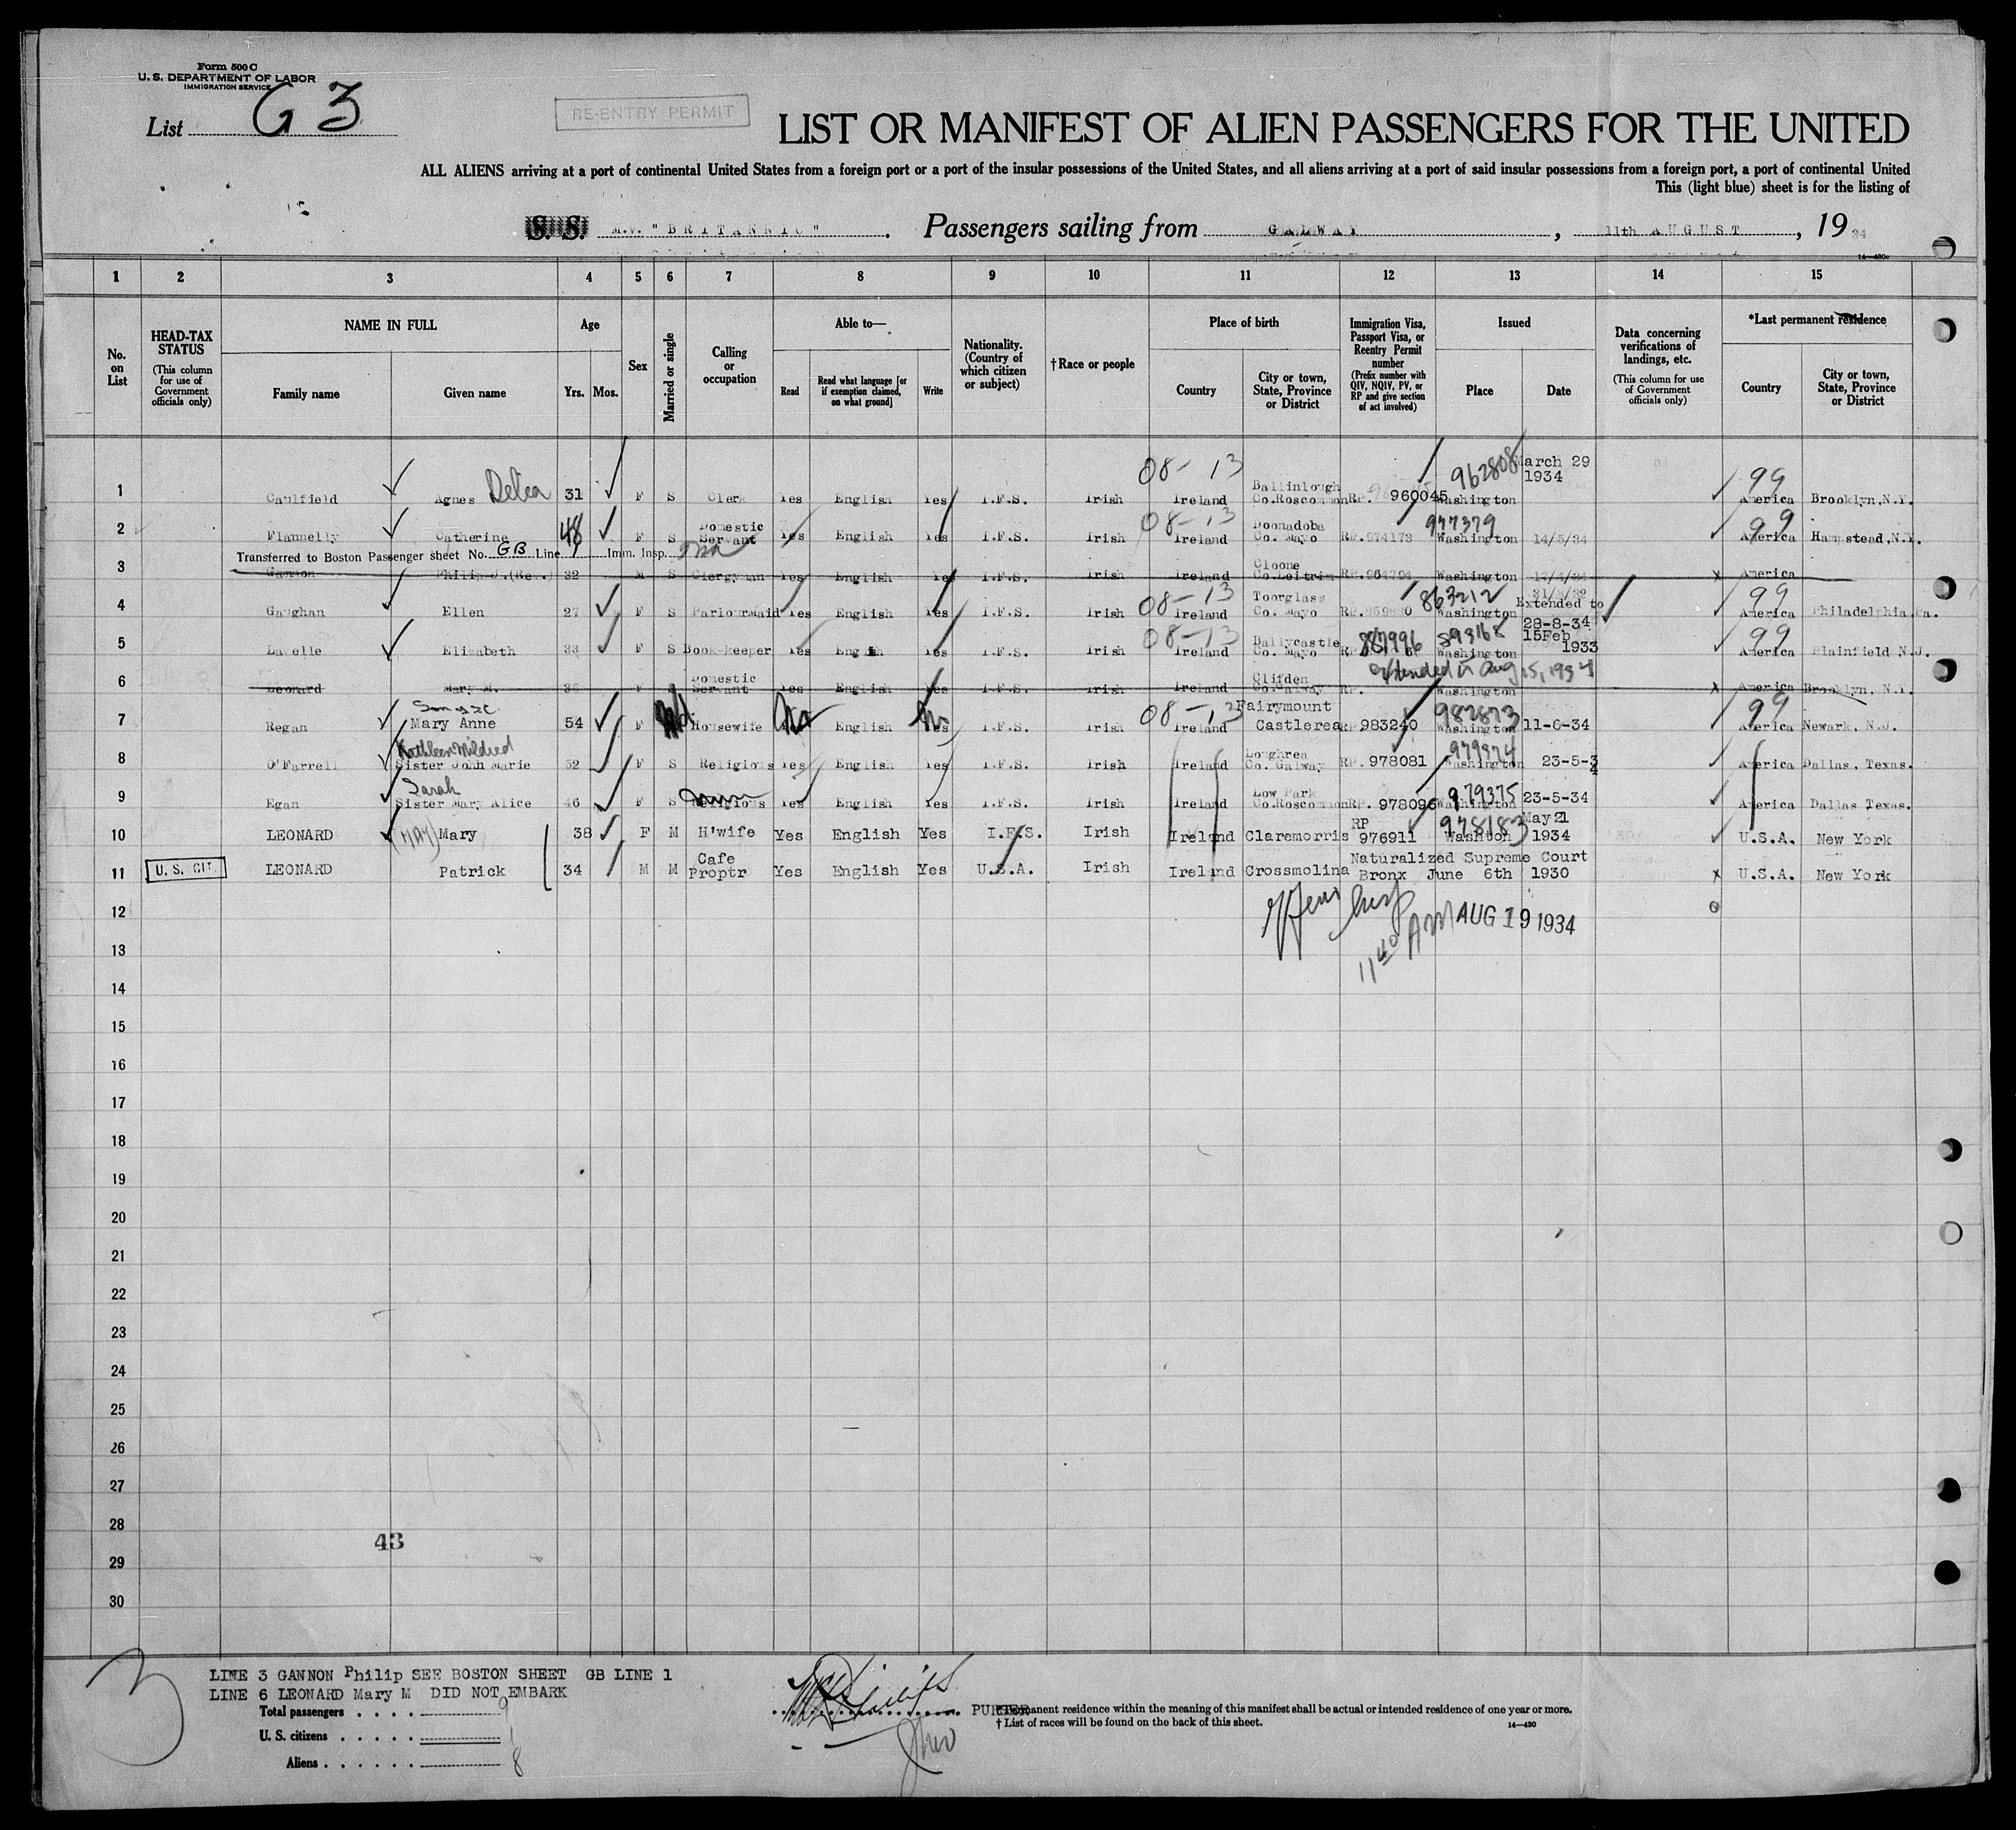 Form 500 C
U. S. DEPARTMENT OF LABOR
IMMIGRATION SERVICE
List G 3
RE-ENTRY PERMIT
LIST OR MANIFEST OF ALIEN PASSENGERS FOR THE UNITED
ALL ALIENS arriving at a port of continental United States from a foreign port or a port of the insular possessions of the United States, and all aliens arriving at a port of said insular possessions from a foreign port, a port of continental United
This (light blue) sheet is for the listing of
S. S. M.V. "BRITANNIC". Passengers sailing from GALWAY, 11th AUGUST, 1934
14—430c
1 2 3 4 5 6 7 8 9 10 11 12 13 14 15
No. on List
HEAD-TAX STATUS (This column for use of Government officials only)
NAME IN FULL
Family name
Given name
Age
Yrs. Mos.
Sex
Married or single
Calling or occupation
Able to—
Read
Read what language [or if exemption claimed, on what ground]
Write
Nationality. (Country of which citizen or subject)
† Race or people
Place of birth
Country
City or town, State, Province or District
Immigration Visa, Passport Visa, or Reentry Permit number (Prefix number with QIV, NQIV, PV, or RP and give section of act involved)
Issued
Place
Date
Data concerning verifications of landings, etc. (This column for use of Government officials only)
*Last permanent residence
Country
City or town, State, Province or District
08-13 962808 March 29 1934 99
1 Caulfield Agnes Delia 31 F S Clerk Yes English Yes I.F.S. Irish Ireland Ballinlough Co.Roscommon RP. 960045 Washington America Brooklyn,N.Y.
08-13 977379 99
2 Flannelly Catherine 48 F S Domestic Servant Yes English Yes I.F.S. Irish Ireland Doonadoba Co. Mayo RP.974173 Washington 14/5/34 America Hampstead,N.Y.
Transferred to Boston Passenger sheet No. GB Line 1 Imm. Insp.
3 Gannon Philip J.(Rev.) 32 M S Clergyman Yes English Yes I.F.S. Irish Ireland Cloone Co.Leitrim RP.964794 Washington 17/4/34 America
08-13 863212 99
4 Gaughan Ellen 27 F S Parlourmaid Yes English Yes I.F.S. Irish Ireland Toorglass Co. Mayo Washington 31/8/32 Extended to 28-8-34 America Philadelphia,Pa.
08-13 887996 893168 99
5 Lavelle Elizabeth 33 F S Book-keeper Yes English Yes I.F.S. Irish Ireland Ballycastle Co. Mayo RP Washington 15Feb 1933 America Plainfield N.J.
extended to Aug 15, 1934
6 Leonard Mary M. F S Domestic Servant Yes English Yes I.F.S. Irish Ireland Clifden Co.Galway RP. Washington America Brooklyn, N.Y.
08-13 982873 99
7 Regan Mary Anne 54 F Md Housewife No English No I.F.S. Irish Ireland Fairymount Castlerea RP.983240 Washington 11-6-34 America Newark, N.J.
Kathleen Mildred 979374
8 O'Farrell Sister John Marie 52 F S Religious Yes English Yes I.F.S. Irish Ireland Loughrea Co. Galway RP.978081 Washington 23-5-34 America Dallas, Texas.
Sarah 979375
9 Egan Sister Mary Alice 46 F S Religious Yes English Yes I.F.S. Irish Ireland Low Park Co.Roscommon RP. 978096 Washington 23-5-34 America Dallas Texas.
10 LEONARD (MAY) Mary 38 F M H'wife Yes English Yes I.F.S. Irish Ireland Claremorris RP 976911 978183 Washton May 21 1934 U.S.A. New York
11 U. S. CIT. LEONARD Patrick 34 M M Cafe Proptr Yes English Yes U.S.A. Irish Ireland Crossmolina Naturalized Supreme Court Bronx June 6th 1930 U.S.A. New York
12
11 40 AM AUG 19 1934
13
14
15
16
17
18
19
20
21
22
23
24
25
26
27
28
43
29
30
3
LINE 3 GANNON Philip SEE BOSTON SHEET GB LINE 1
LINE 6 LEONARD Mary M DID NOT EMBARK
Total passengers 9
U. S. citizens 1
Aliens 8
PURSER
* Permanent residence within the meaning of this manifest shall be actual or intended residence of one year or more.
† List of races will be found on the back of this sheet.
14—430